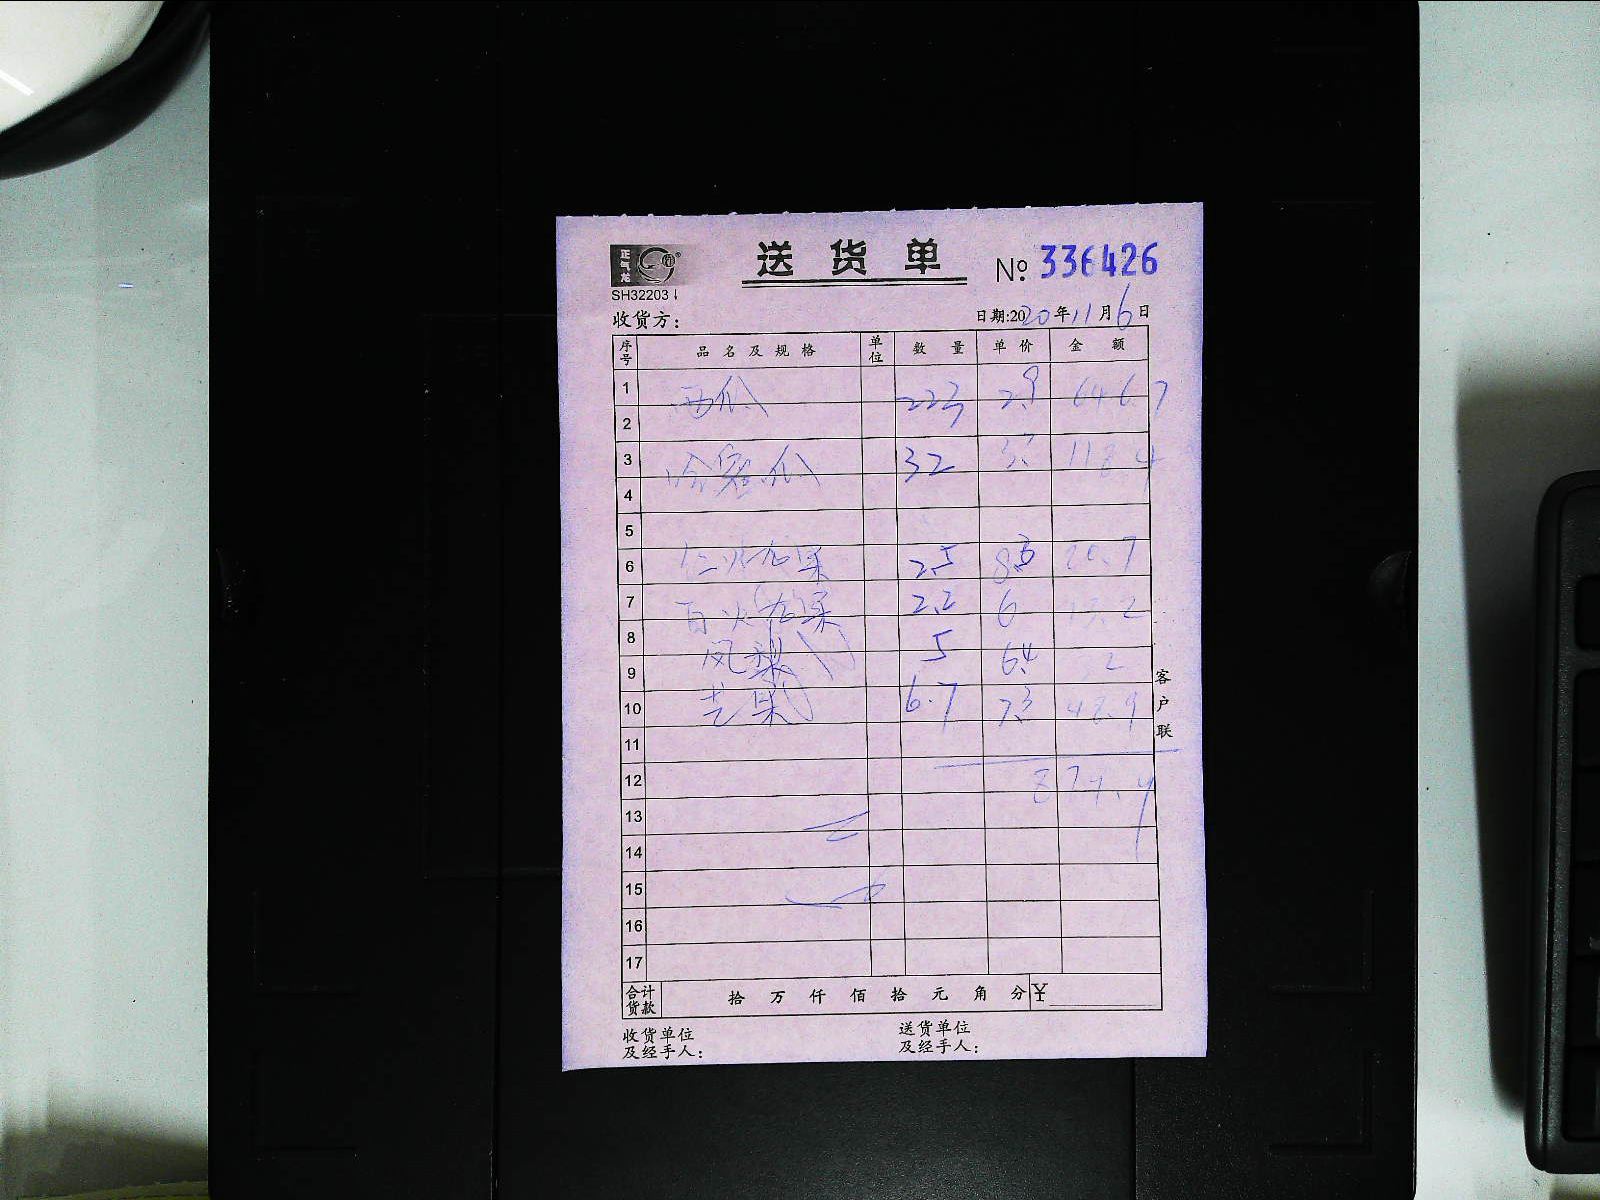 正气龙
送货单
№ 336426
SH32203
收货方：
日期:2020年11月6日
序号 品名及规格 单位 数量 单价 金额
1 西瓜 223 2.9 646.7
2
3 哈密瓜 32 3.7 118.4
4
5
6 红火龙果 2.5 8.3 20.7
7 白火龙果 2.2 6 13.2
8
9 凤梨 5 6.4
10 芒果 6.7 7.3 48.9
11
12
13
14
15
16
17
合计货款 拾 万 仟 佰 拾 元 角 分 ¥
客户联
收货单位及经手人：
送货单位及经手人：